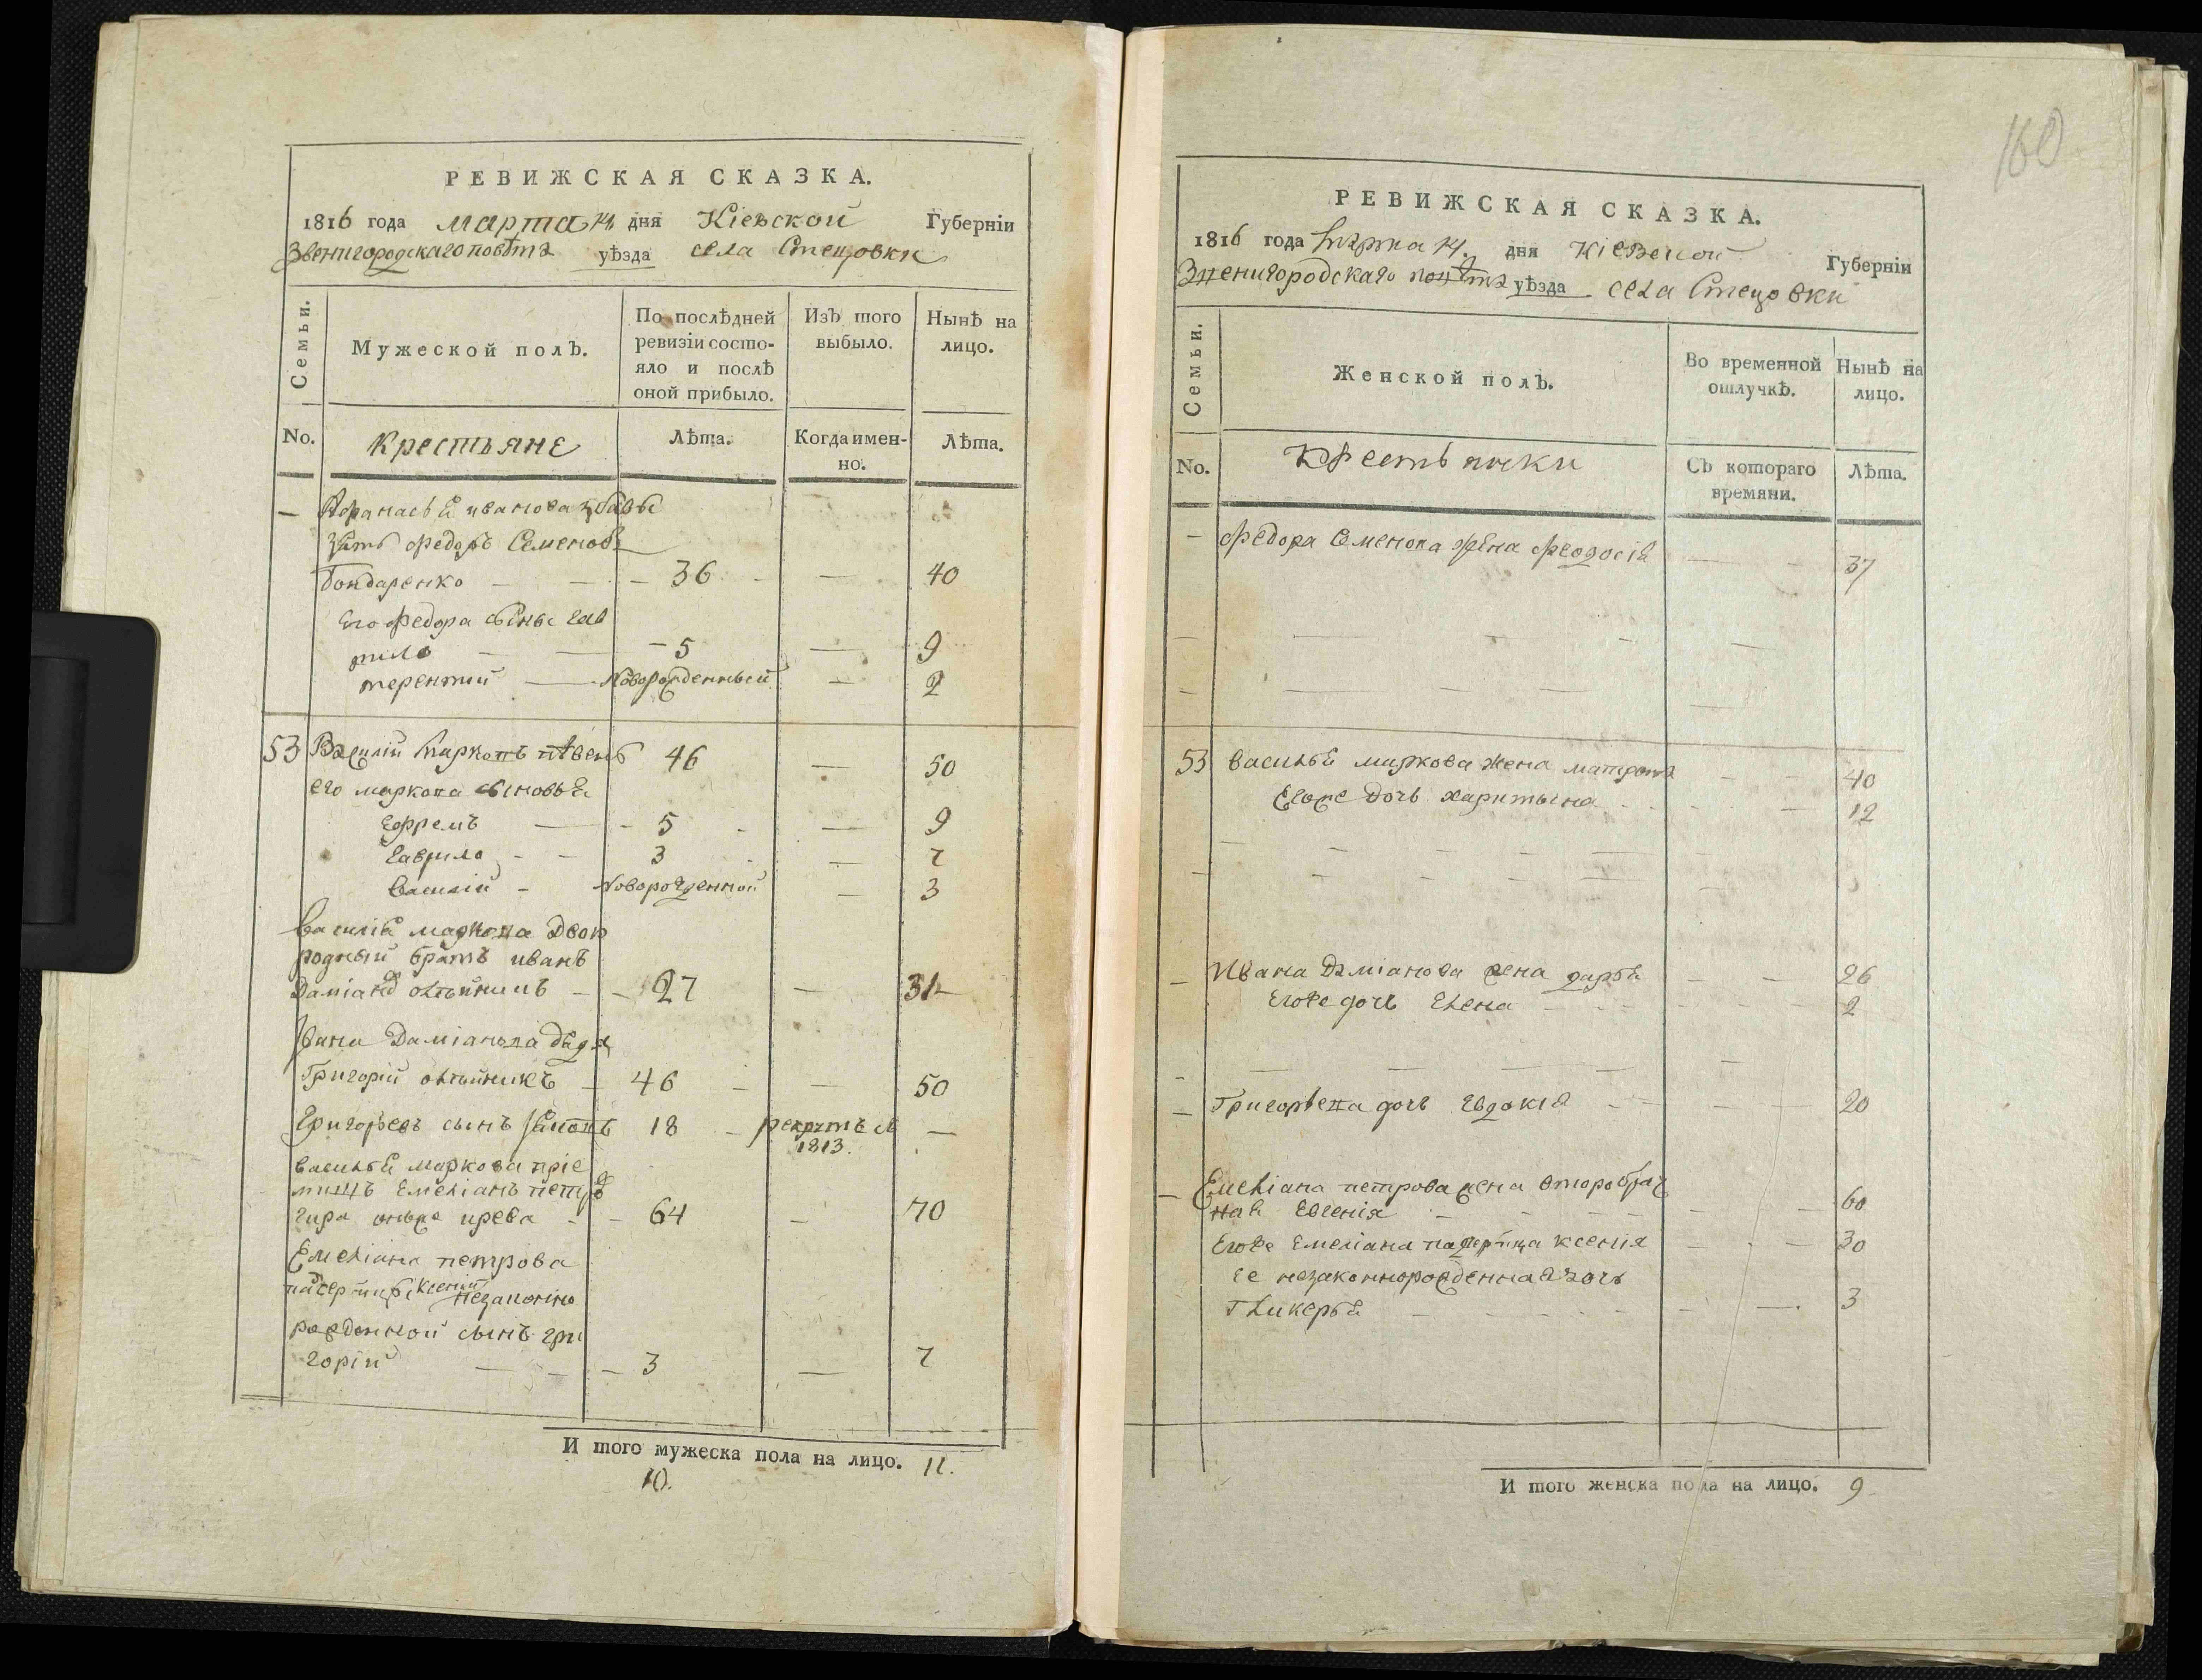 РЕВИЖСКАЯ СКАЗКА.
1816 года марта 14 дня Кіевской Губерніи
Звенигородскаго повѣта уѣзда села Стецовки
Семьи.
Мужеской полъ.
По послѣдней ревизіи состояло и послѣ оной прибыло.
Изъ того выбыло.
Нынѣ на лицо.
No.
крестьяне
Лѣта.
Когда именно.
Лѣта.
— Афанасъя иванова
зять федоръ Семеновъ
Бондаренко — — 36 — 40
Его федора сыны гав
рило — — 5 — 9
терентий — Новорожденный — 2
53 Василій Марковъ 46 — 50
его маркова сыновья
Ефремъ — 5 — 9
Гаврило — 3 — 7
Василий — Новорожденной — 3
Василія маркова двою
родный братъ иванъ
Даміановъ олѣйникъ — 27 — 31
Ивана Даміанова дядя
Григорій олѣйникъ — 46 — 50
Григорьевъ сынъ 18 рекрутъ в —
1813.
Василья маркова пріе
мишъ Емеліанъ петров
64 — 70
Емеліана петрова
падчерицы ксении незаконно
рожденной сынъ гри
горій — 3 — 7
И того мужеска пола на лицо. 11.
10.
160
РЕВИЖСКАЯ СКАЗКА.
1816 года Марта 14. дня Кіевской Губерніи
Звенигородскаго повѣта уѣзда села Стецовки
Семьи.
Женской полъ.
Во временной отлучкѣ.
Нынѣ на лицо.
No.
Крестьянки
Съ котораго времяни.
Лѣта.
— Федора Семенова жена феодосія — 37
53 Василья маркова жена матрона — 40
Егоже дочь харитына — 12
— Ивана Даміанова жена дарья — 26
Егоже дочь Елена — 2
— Григорьева дочь Евдокія — 20
— Емеліана петрова жена второбрач
ная Евгенія — 60
Егоже Емеліана падчерица ксенія — 30
ее незаконнорожденная дочь
Гликерья — 3
И того женска пола на лицо. 9